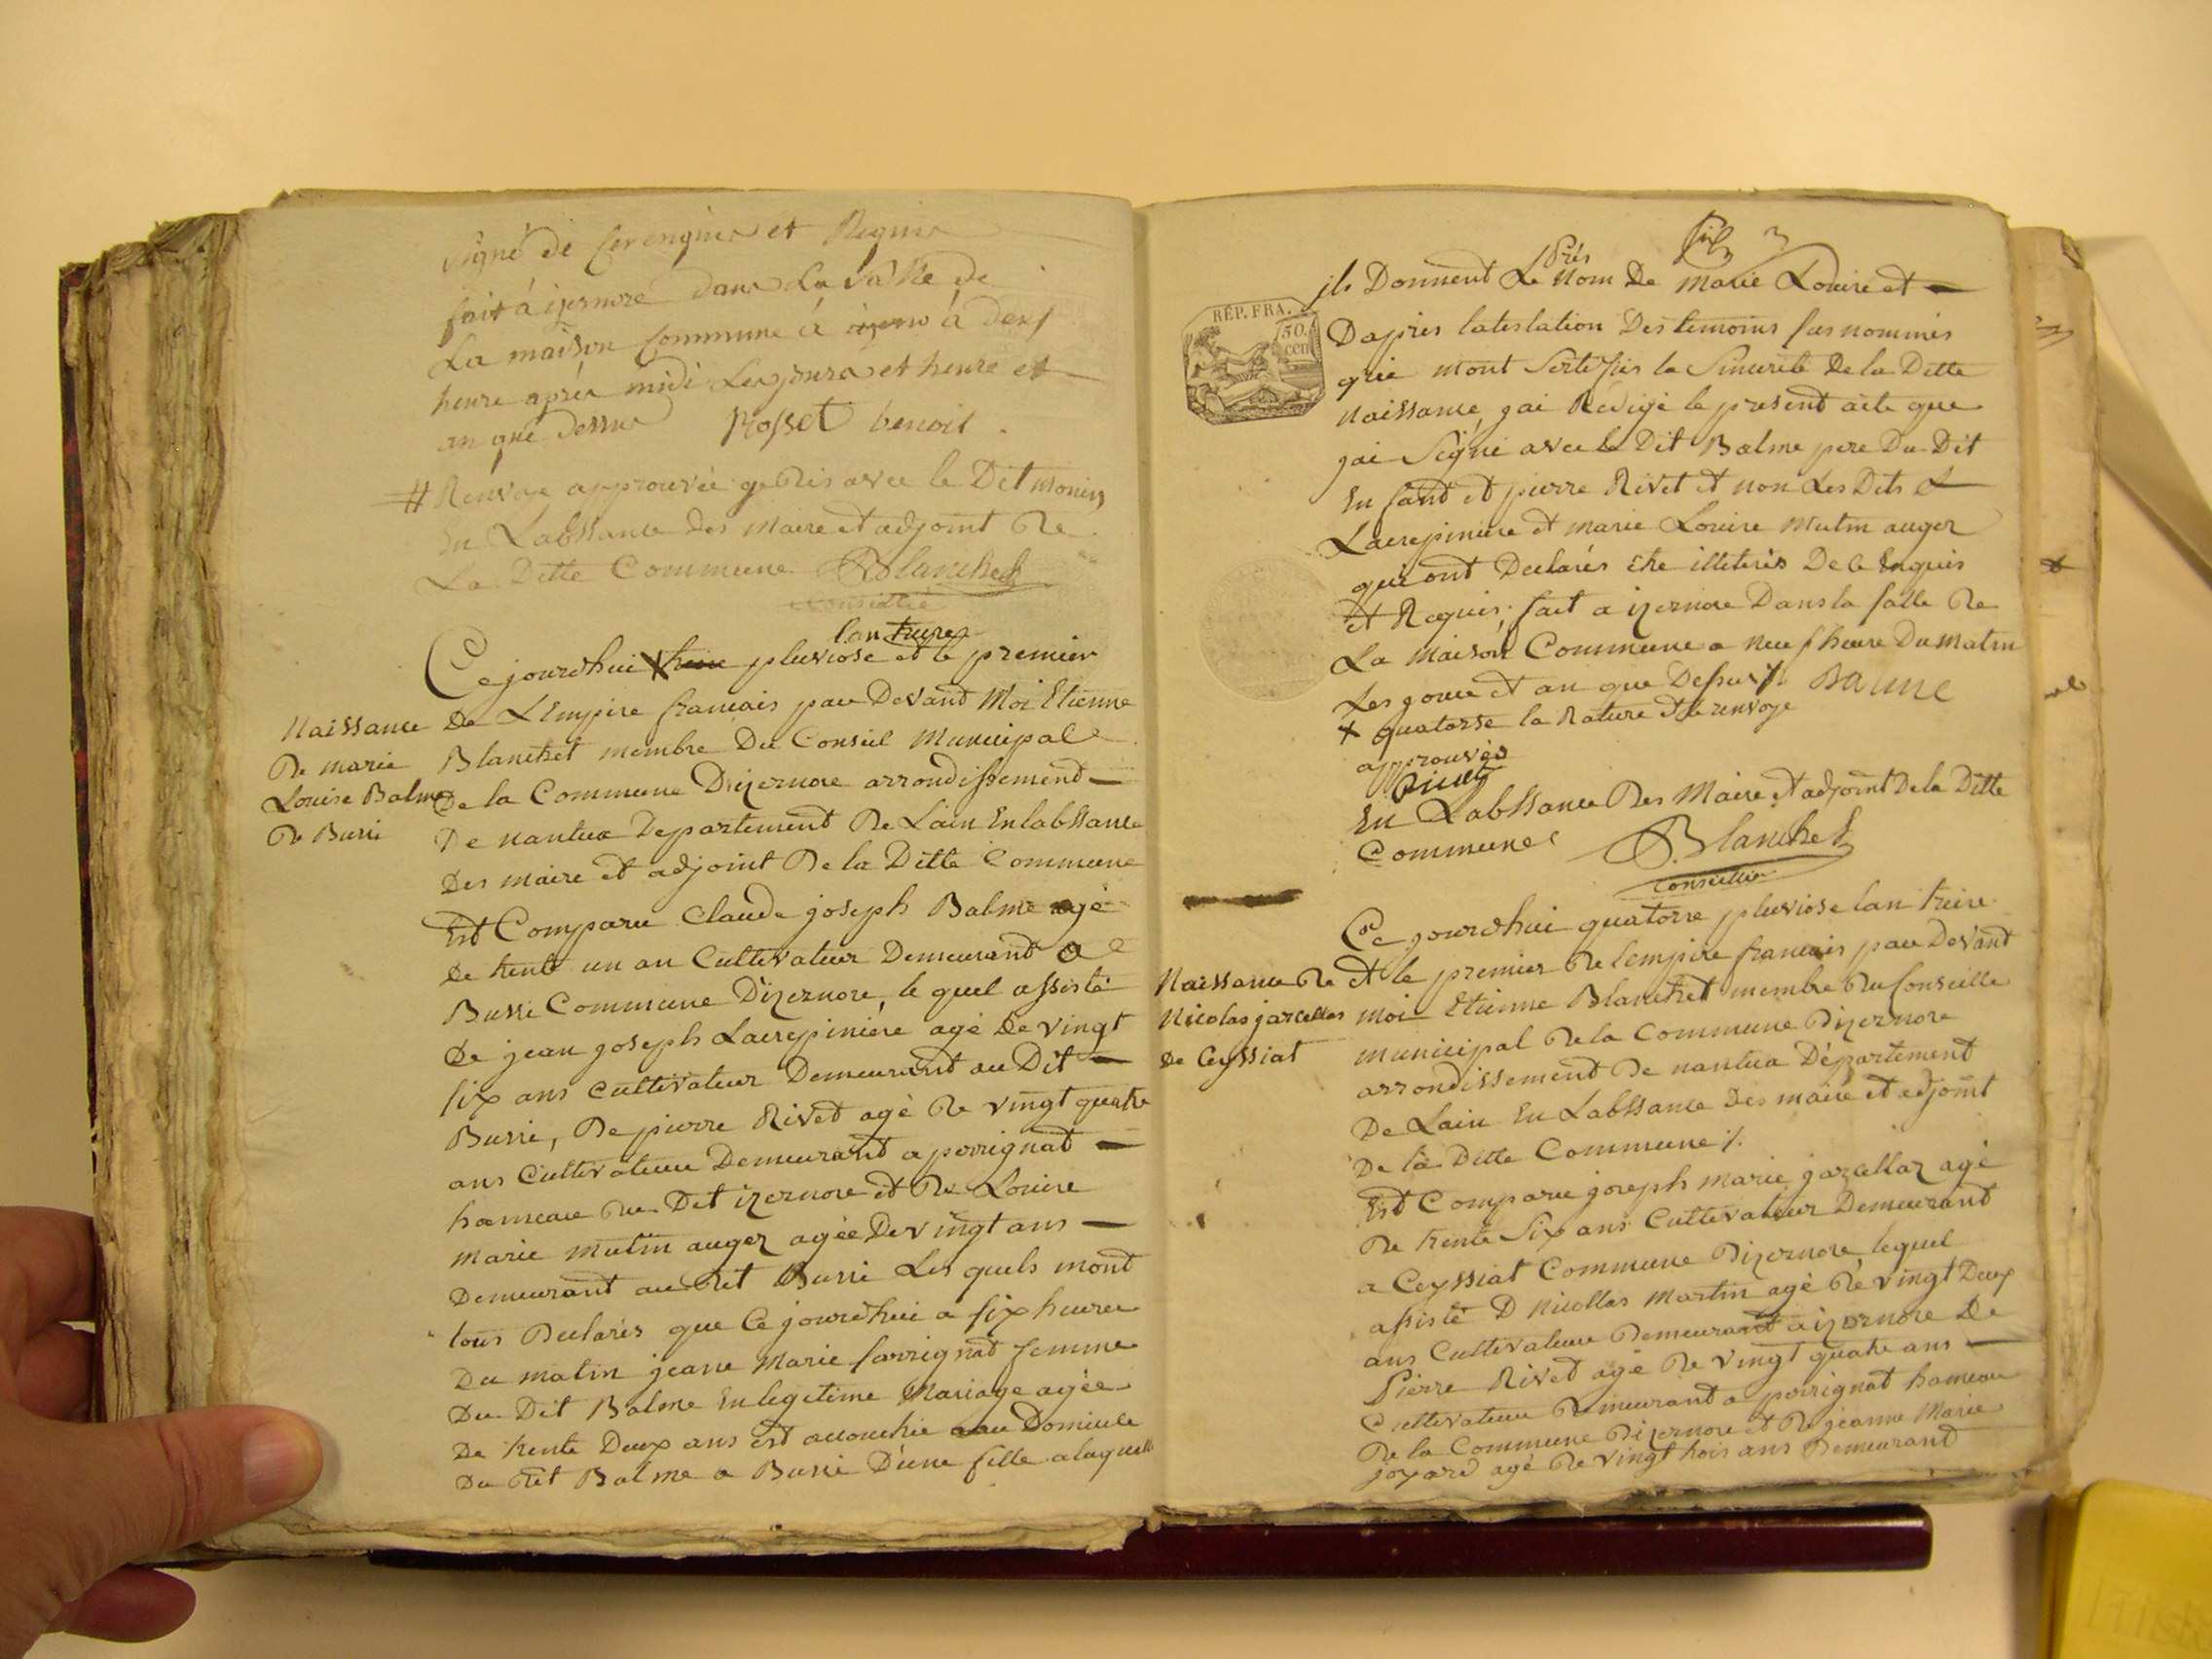 signé de ce enquis et Requis
fait à izernore dans La salle de
La maison Commune à à deux
heure après midi Les jours et heure et
an que dessus Rosset benoit
# Renvoye approuvée avec le Dit monin
En LabSsance des Maire et adjoint De
La Ditte Commune Blanchet
Conseillié
lan treize
Ce jourdhui treize pluviose et le premier
De LEmpire francais par Devand Moi Etienne
Blanchet membre Du Conseil Municipal
De la Commune Dizernore arrondissement
De nantua Departement De Lain En labSsance
Des maire et adjoint De la Ditte Commune
Est Comparu Claude joseph Balme agé
De trente un an Cultivateur Demeurand a
Bussi Commune D'izernore, le quel assisté
De jean joseph Lacrepiniére agé De vingt
six ans cultivateur Demeurand au Dit
Bussi, De pierre Rivet agé De vingt quatre
ans Cultivateur Demeurand a perrignat
hameau Du Dit izernore et De Louise
marie mutin auger agée De vingt ans
Demeurant au Dit Bussi Les quels mont
tous Declarés que Ce jourdhui a six heures
Du matin jeane Marie farrignad femme
Du Dit Balme En legitime Mariage agée
De trente Deux ans est accouchée au Domicile
Du Dit Balme a Bussi D'une fille a laquelle
Naissance
De marie
Louise Balme
De Bussi
RÉP. FRA.
50.
cen
Prés
ils Donnent Le Nom De Marie Louise et
Dapres latestation Des temoins sus nommés
que mont Sertifiés la Sincerité De la Ditte
Naissance, jai Rédigé le present acte que
jai Signé avec le Dit Balme pere Du Dit
Enfand et pierre Rivet et non Les Dits
Lacrepiniere et marie Louise Mutin auger
qui ont Declarés Etre illiterés De Ce Enquis
et Requis; fait a izernore Dans la salle De
La maison Commune a neuf heure Du matin
Les jour et an que Dessus Balme
+ quatorse la Rature et le renvoye
approuvés
Rivet
En LabSsance Des Maire et adjoint De la Ditte
Commune Blanchet
Conseillier
Ce jourdhui quatorze pluviose lan treize
et le premier De lempire francais par Devand
moi Etienne Blanchet membre Du Conseille
municipal De la Commune Dizernore
arrondissement De nantua Département
De Lain En LabSsance Des maire et adjoint
De la Ditte Commune /.
Est Comparu joseph marie jarcellaz agé
De trente Six ans Cultivateur Demeurand
a Ceyssiat Commune Dizernore lequel
assisté D Nicollas Martin agé De vingt Deux
ans Cultivateur Demeurand a izernore De
Pierre Rivet agé De vingt quatre ans
Cultivateur Demeurand a perrignat hameau
De la Commune Dizernore et De jeanne Marie
joyard agé De vingt trois ans Demeurand
Naissance De
Nicolas jarcellas
de Ceyssiat